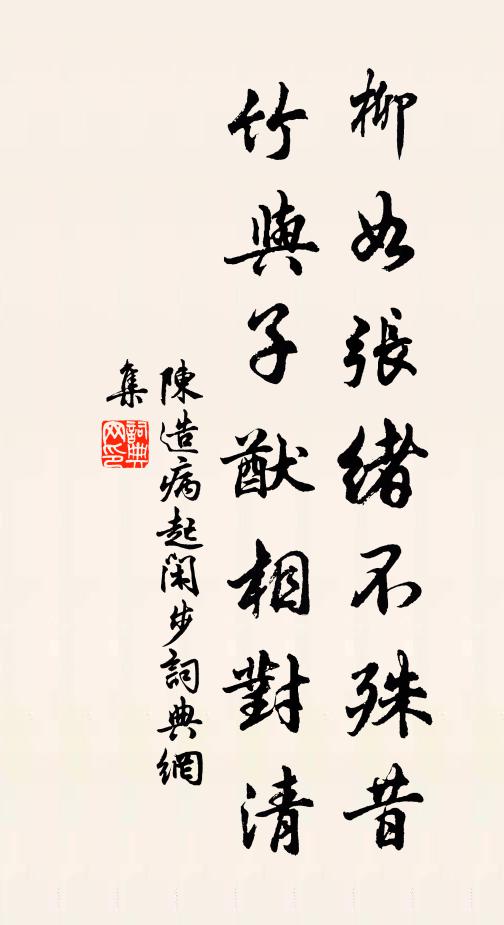 柳如張緒不殊昔
竹與子猷相對清
陳造病起闲步詞典網
集
詞典网印